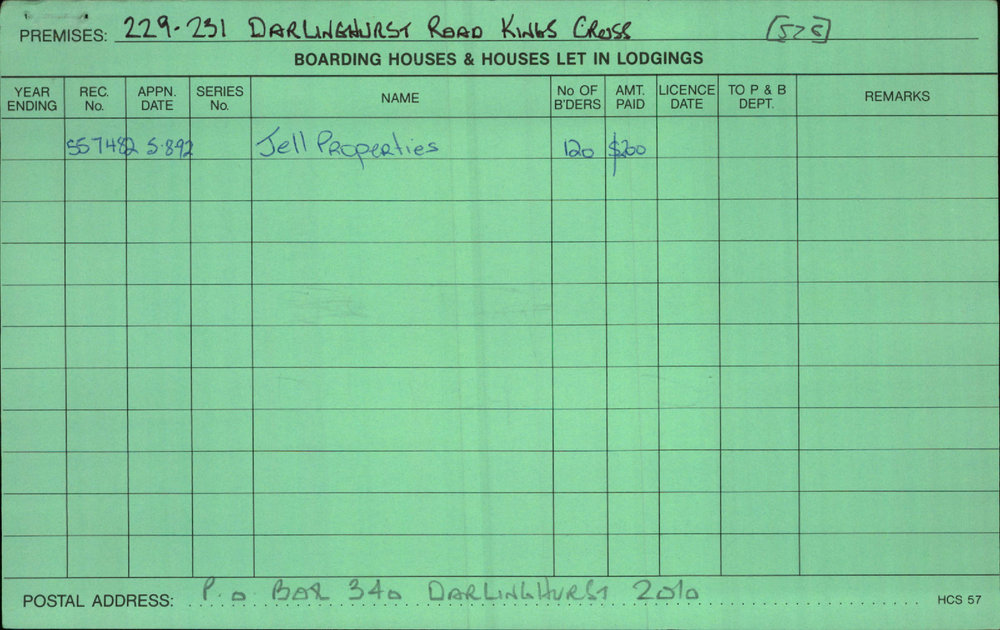 PREMISES: 229-231 DARLINGHURST ROAD KINGS CROSS [578]
BOARDING HOUSES & HOUSES LET IN LODGINGS
YEAR ENDING REC. No. APPN. DATE SERIES No. NAME No OF B'DERS AMT. PAID LICENCE DATE TO P & B DEPT. REMARKS
557482 5.8.92 Jell Properties 120 $200
POSTAL ADDRESS: P.O BOX 340 DARLINGHURST 2010 HCS 57